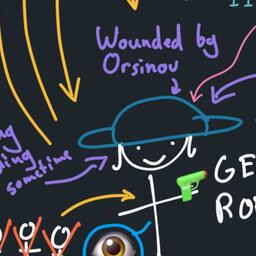 Wounded by
Orsinov
sometime
GE
RO